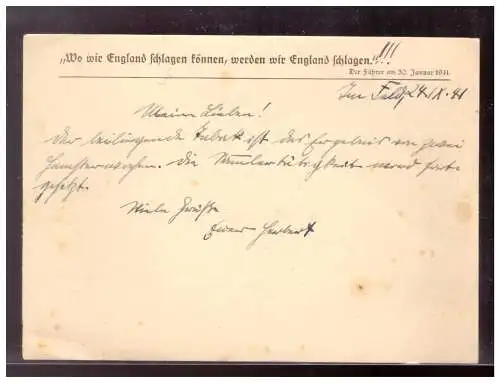 „Wo wir England schlagen können, werden wir England schlagen."!!!
Der Führer am 30. Januar 1941.
Im Feld, 24.IX.41
Meine Lieben!
Der beiliegende Tabak ist das Ergebnis von zwei
Hamsterwochen. Die Sammlertätigkeit wird fort-
gesetzt.
Viele Grüße
Euer Herbert